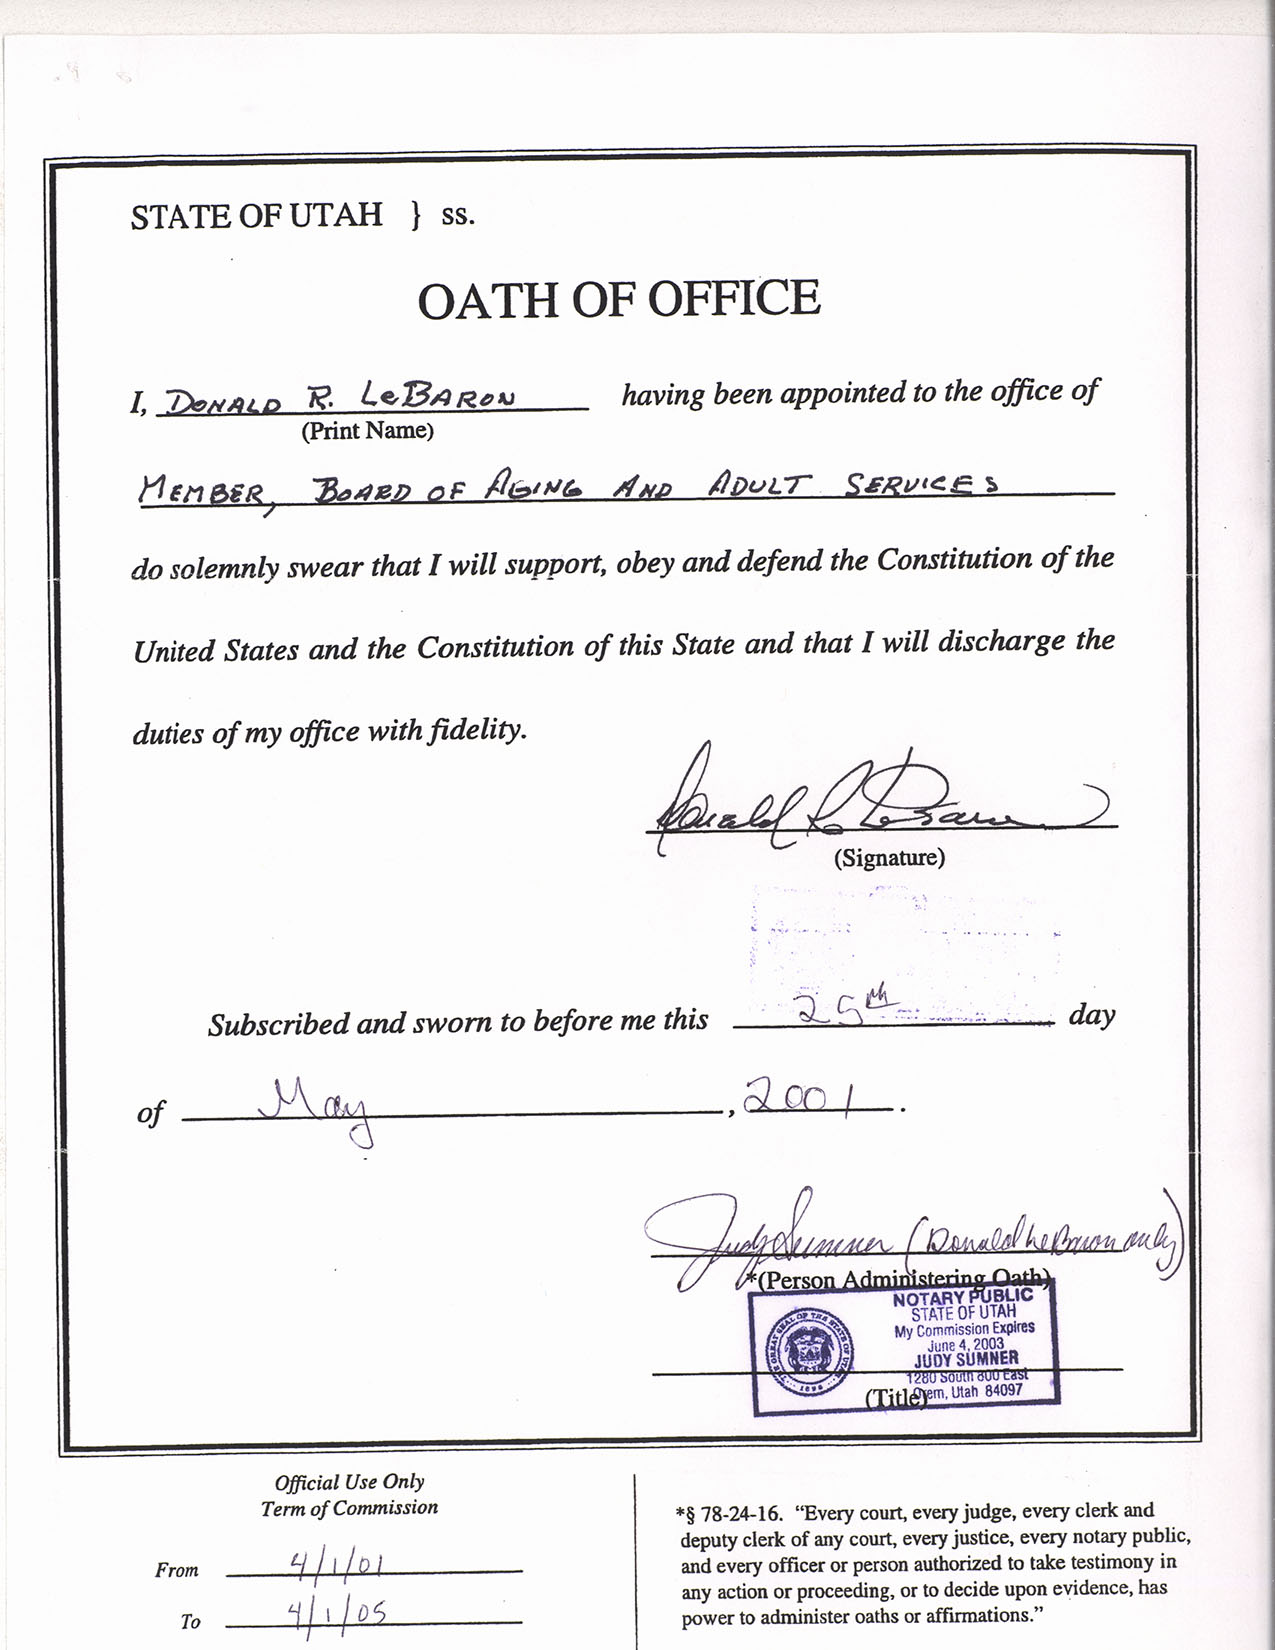 STATE OF UTAH } ss.
OATH OF OFFICE
I, DONALD R. LeBARON having been appointed to the office of
(Print Name)
MEMBER, BOARD OF AGING AND ADULT SERVICES
do solemnly swear that I will support, obey and defend the Constitution of the
United States and the Constitution of this State and that I will discharge the
duties of my office with fidelity.
Donald R LeBaron
(Signature)
Subscribed and sworn to before me this 25th day
of May, 2001.
Judy Sumner (Donald LeBaron only)
*(Person Administering Oath)
NOTARY PUBLIC
STATE OF UTAH
My Commission Expires
June 4, 2003
JUDY SUMNER
1280 South 800 East
Orem, Utah 84097
THE GREAT SEAL OF THE STATE OF UTAH
1896
(Title)
Official Use Only
Term of Commission
From 4/1/01
To 4/1/05
*§ 78-24-16. “Every court, every judge, every clerk and
deputy clerk of any court, every justice, every notary public,
and every officer or person authorized to take testimony in
any action or proceeding, or to decide upon evidence, has
power to administer oaths or affirmations.”